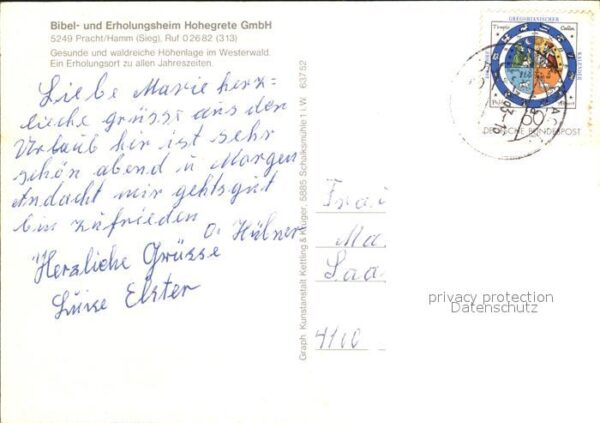 Bibel- und Erholungsheim Hohegrete GmbH
5249 Pracht/Hamm (Sieg), Ruf 0 26 82 (313)
Gesunde und waldreiche Höhenlage im Westerwald.
Ein Erholungsort zu allen Jahreszeiten.
Liebe Marie herz=
liche grüsse aus den
Urlaub hir ist sehr
schön abend u Morgen
Andacht mir gehts gut
bin zufrieden
O. Hülner
Herzliche Grüsse
Luise Elster
Graph. Kunstanstalt Kettling & Krüger, 5885 Schalksmühle 1 i.W. 637 52
GREGORIANISCHER
KALENDER
60
DEUTSCHE BUNDESPOST
Frau
Ma
Saa
4100
privacy protection
Datenschutz